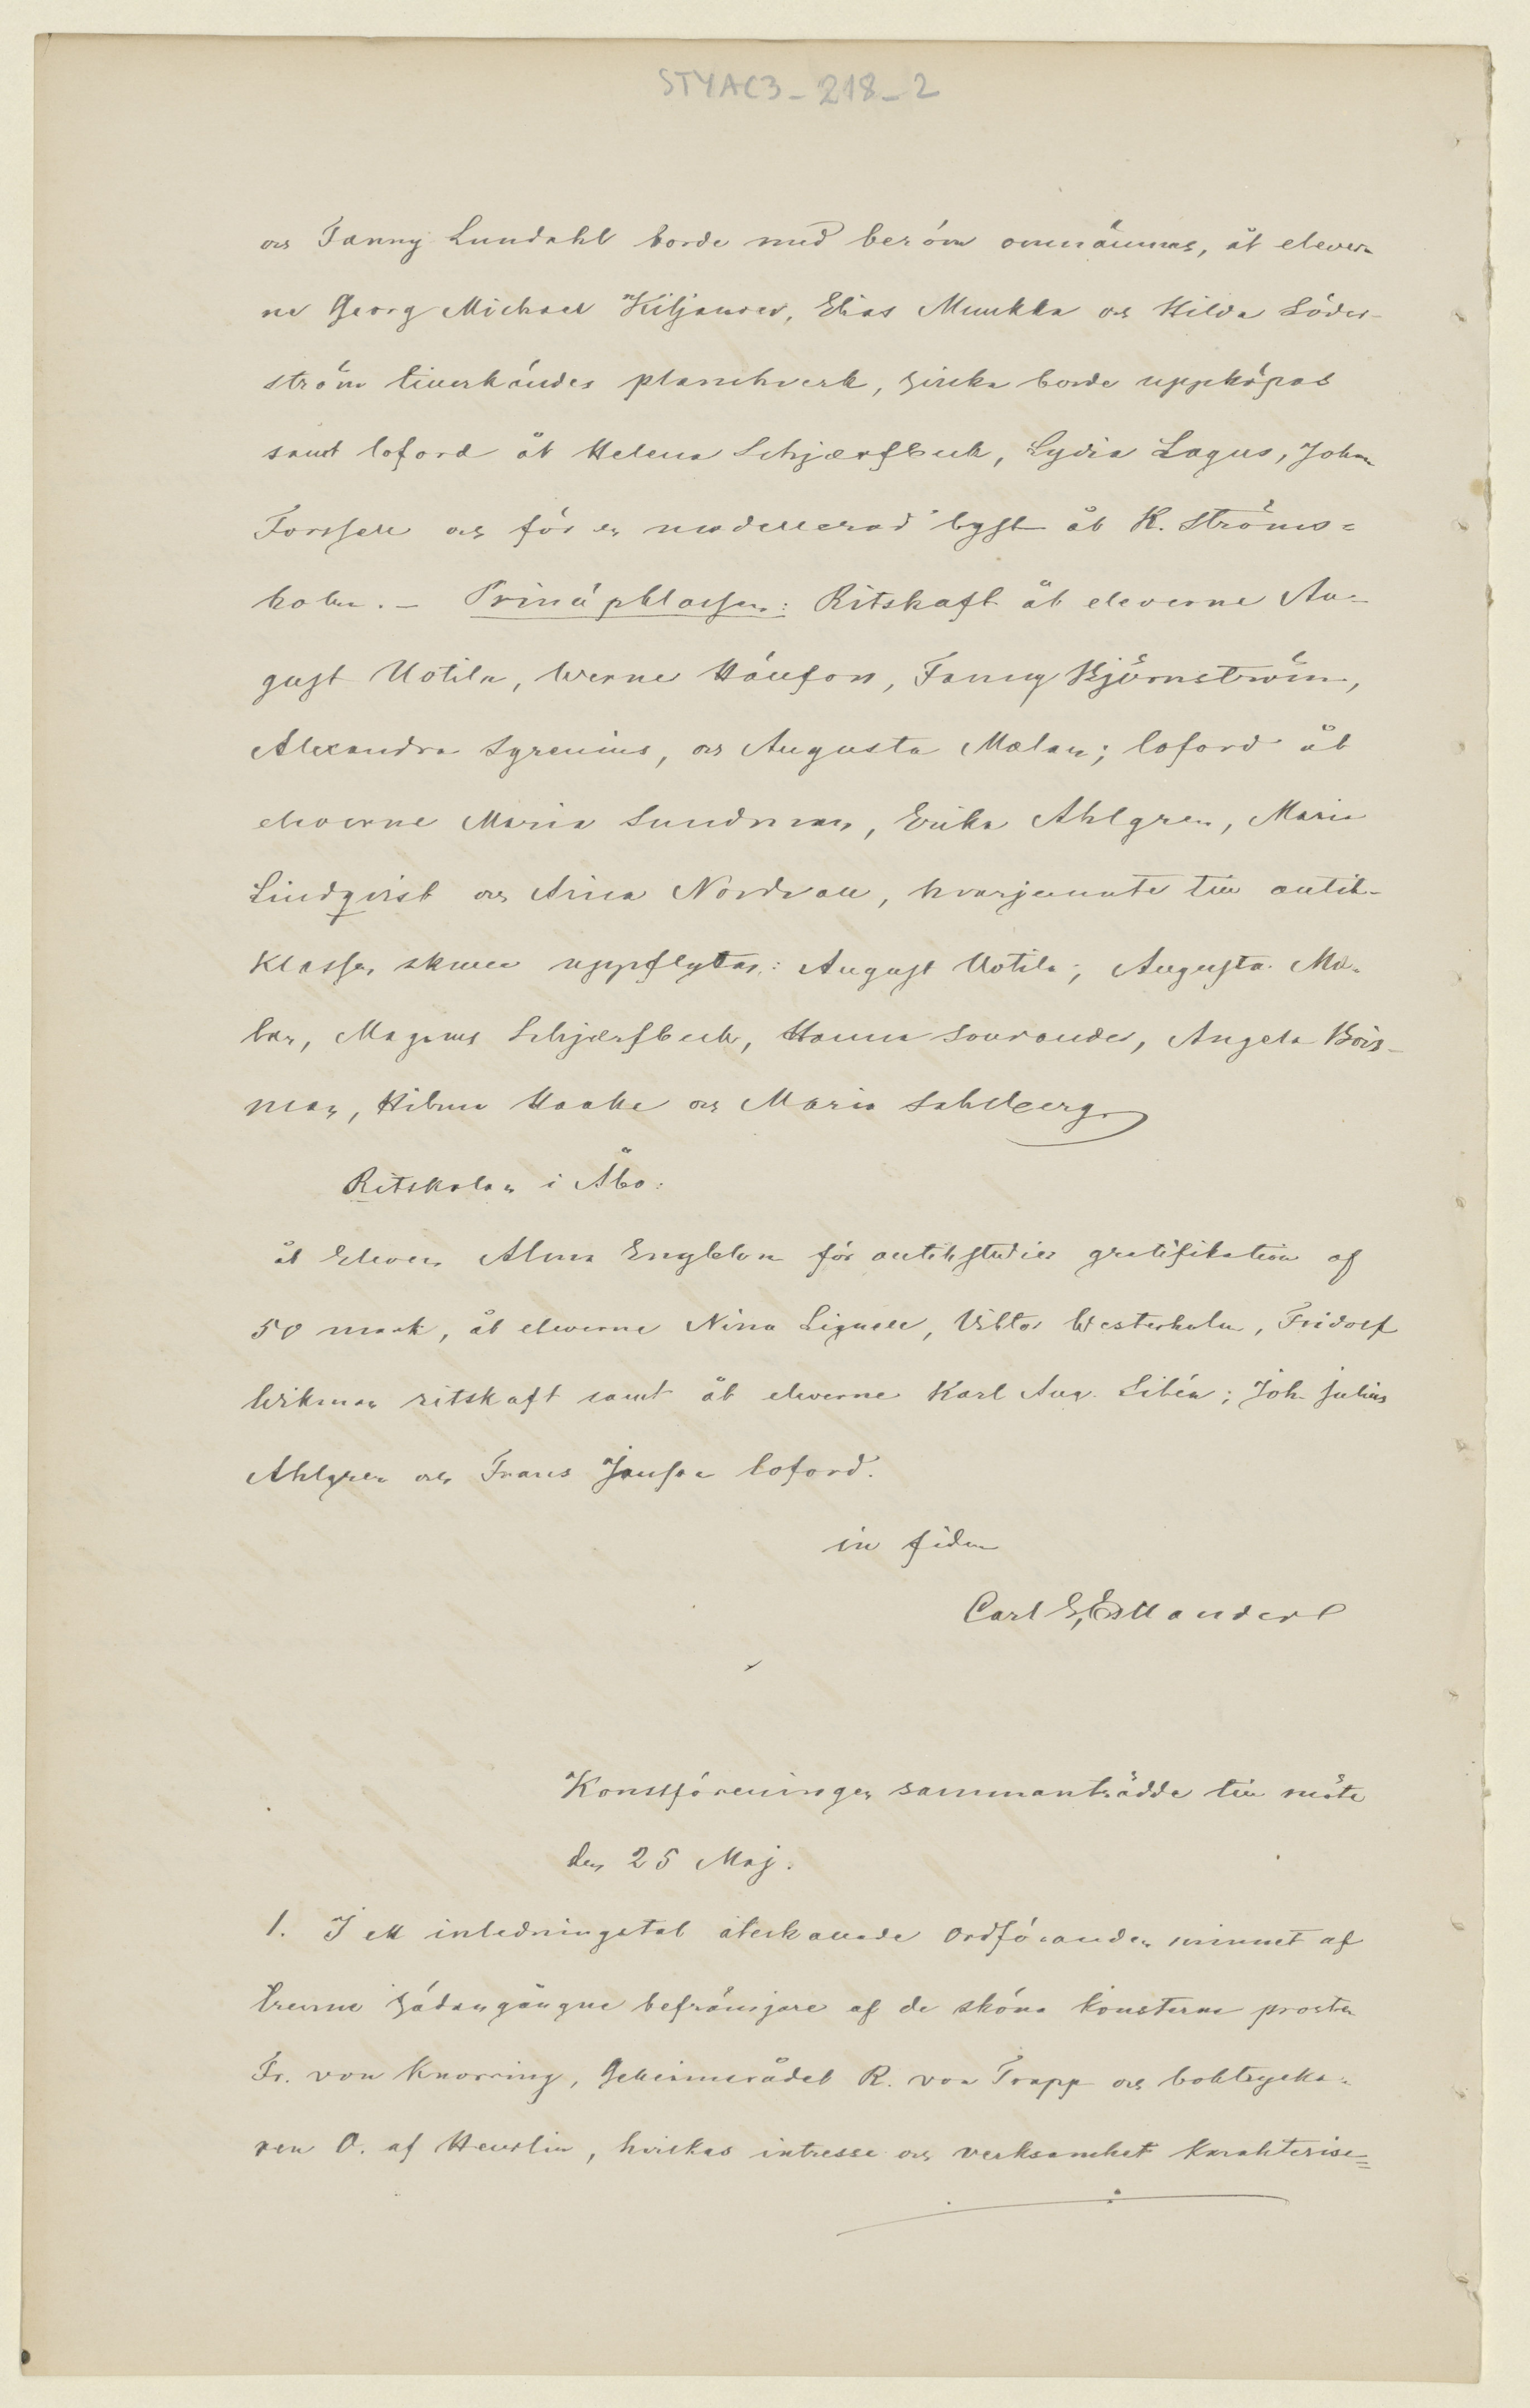 STYAC3_218_2
och Fanny Lundahl borde med beröm omnämnas, åt elever-
ne Georg Michael Kiljander, Elias Muukka och Hilda Söder-
ström tillerkändes planchverk, hvilka borde uppköpas
samt loford åt Helena Schjærfbeck, Lydia Lagus, John
Forssell och för en modellerad byst åt K. Ströms-
holm. – Principklassen: Ritskaft åt eleverne Au-
gust Uotila, Werne Hönfors, Fanny Björnström,
Alexandra Syrenius, och Augusta Malan; loford åt
eleverne Maria Sundman, Erika Ahlgren, Maria
Lindqvist och Aina Nordvall, hvarjemnte till antik-
klassen skulle uppflyttas: August Uotila, Augusta Ma-
lan, Magnus Schjærfbeck, Hanna Sourander, Angela Bois-
man, Hilma Haake och Maria Sahlberg.
Ritskolan i Åbo:
åt Eleven Alma Engblom för antikstudier gratifikation af
50 mark, åt eleverne Nina Lignell, Viktor Westerholm, Fridolf
Wikman ritskaft samt åt eleverne Karl Aug. Silén; Joh Julius
Ahlgren och Frans Jansson loford.
in fidem
Carl G, Estlander
Konstföreningen sammanträdde till möte
den 25 Maj.
1. I ett inledningstal återkallade ordföranden minnet af
trenne hädangångne befrämjare af de sköna konsterna prosten
Fr. von Knorring, Geheimerådet R. von Trapp och boktrycka-
ren O. af Heurlin, hvilkas intresse och verksamhet karakterise-